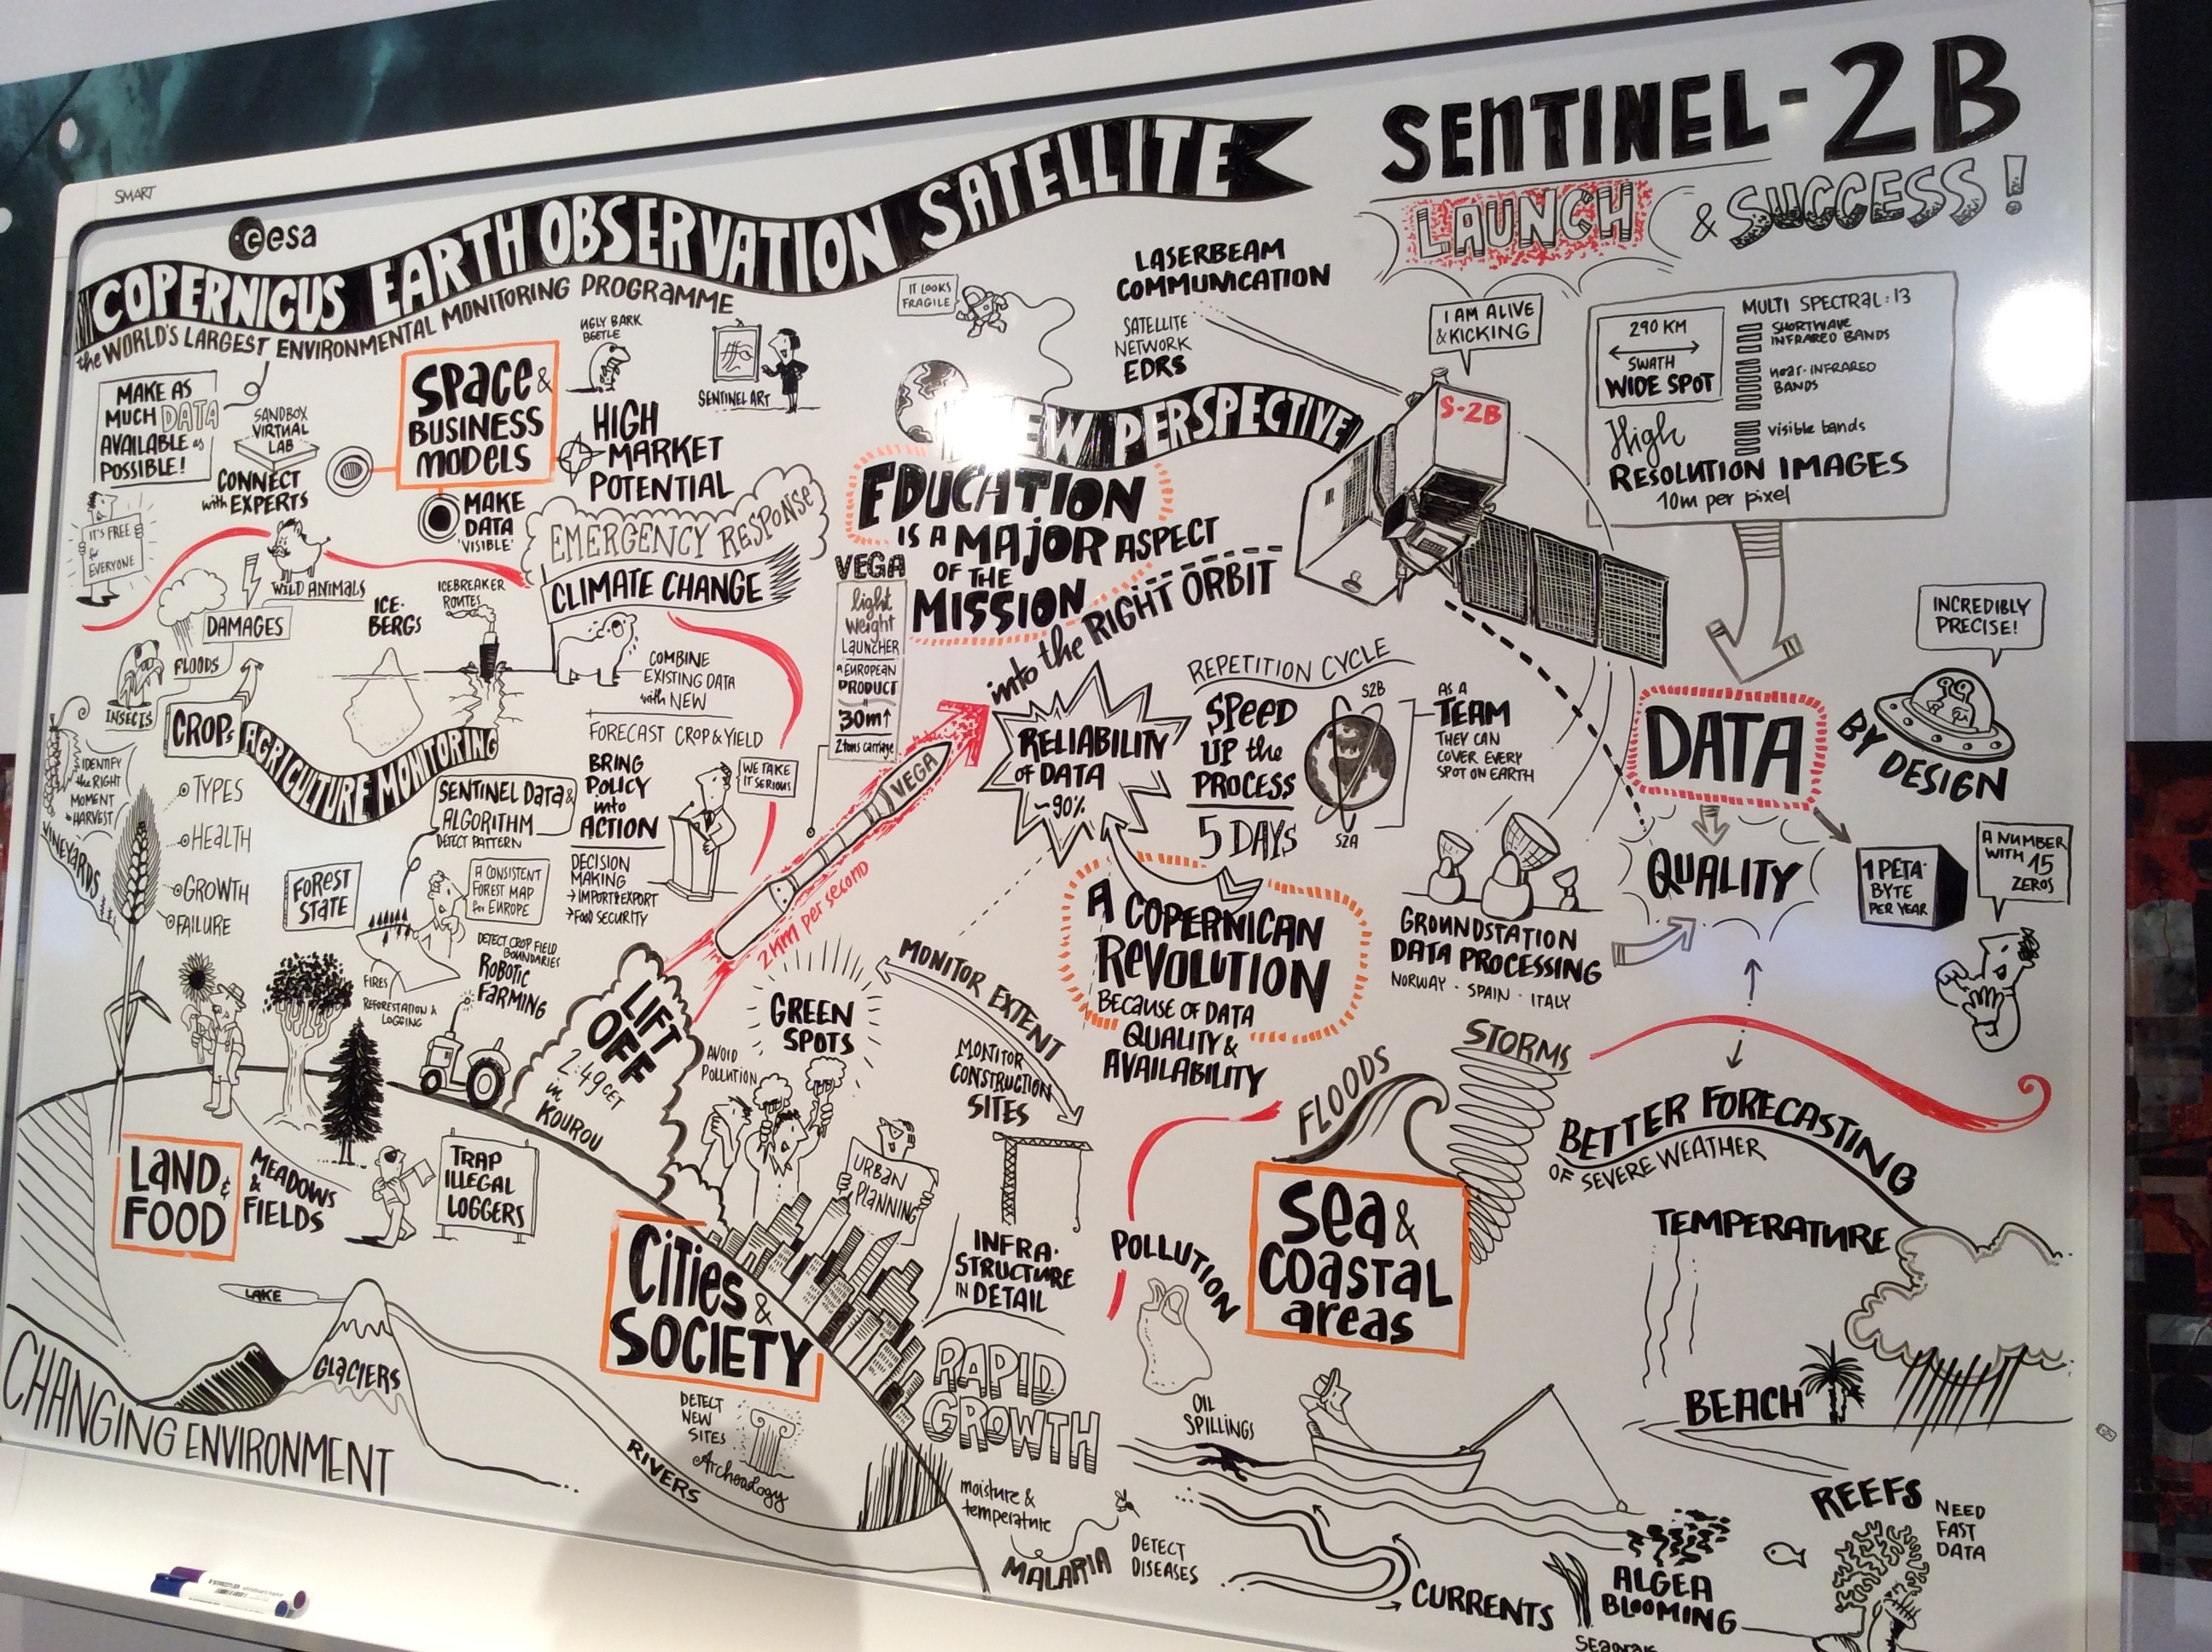 SMART
esa
COPERNICUS EARTH OBSERVATION SATELLITE
the WORLD'S LARGEST ENVIRONMENTAL MONITORING PROGRAMME
SENTINEL-2B
LAUNCH & SUCCESS!
MAKE AS
MUCH DATA
AVAILABLE as
POSSIBLE!
SANDBOX
VIRTUAL
LAB
CONNECT
with EXPERTS
IT'S FREE
for
EVERYONE
SPACE &
BUSINESS
MODELS
MAKE
DATA
'VISIBLE'
UGLY BARK
BEETLE
HIGH
MARKET
POTENTIAL
SENTINEL ART
IT LOOKS
FRAGILE
LASERBEAM
COMMUNICATION
SATELLITE
NETWORK
EDRS
I AM ALIVE
& KICKING
S-2B
290 KM
SWATH
WIDE SPOT
MULTI SPECTRAL: 13
SHORTWAVE
INFRARED BANDS
near-INFRARED
BANDS
visible bands
High
RESOLUTION IMAGES
10m per pixel
NEW PERSPECTIVE
EDUCATION
IS A MAJOR ASPECT
OF THE
MISSION
EMERGENCY RESPONSE
CLIMATE CHANGE
WILD ANIMALS
DAMAGES
FLOODS
INSECTS
ICE-
BERGS
ICEBREAKER
ROUTES
COMBINE
EXISTING DATA
with NEW
FORECAST CROP & YIELD
BRING
POLICY
into
ACTION
DECISION
MAKING
→ IMPORT/EXPORT
→ FOOD SECURITY
WE TAKE
IT SERIOUS
VEGA
light
weight
LAUNCHER
a EUROPEAN
PRODUCT
30m↑
2 tons carriage
into the RIGHT ORBIT
VEGA
2 KM per second
LIFT
OFF
2:49 CET
in
KOUROU
CROP & AGRICULTURE MONITORING
IDENTIFY
the RIGHT
MOMENT
to HARVEST
VINEYARDS
TYPES
HEALTH
GROWTH
FAILURE
SENTINEL DATA &
ALGORITHM
DETECT PATTERN
FOREST
STATE
A CONSISTENT
FOREST MAP
for EUROPE
FIRES
REFORESTATION &
LOGGING
DETECT CROP FIELD
BOUNDARIES
ROBOTIC
FARMING
RELIABILITY
OF DATA
~90%
REPETITION CYCLE
SPEED
UP the
PROCESS
5 DAYS
S2B
S2A
AS A
TEAM
THEY CAN
COVER EVERY
SPOT ON EARTH
DATA
BY DESIGN
INCREDIBLY
PRECISE!
QUALITY
1 PETA-
BYTE
PER YEAR
A NUMBER
WITH 15
ZEROS
GROUNDSTATION
DATA PROCESSING
NORWAY · SPAIN · ITALY
A COPERNICAN
REVOLUTION
BECAUSE OF DATA
QUALITY &
AVAILABILITY
LAND &
FOOD
MEADOWS
&
FIELDS
TRAP
ILLEGAL
LOGGERS
AVOID
POLLUTION
GREEN
SPOTS
MONITOR EXTENT
MONITOR
CONSTRUCTION
SITES
URBAN
PLANNING
INFRA-
STRUCTURE
IN DETAIL
CITIES &
SOCIETY
RAPID
GROWTH
DETECT
NEW
SITES
Archeology
LAKE
GLACIERS
RIVERS
CHANGING ENVIRONMENT
moisture &
temperature
MALARIA
DETECT
DISEASES
FLOODS
STORMS
SEA &
COASTAL
areas
POLLUTION
OIL
SPILLINGS
BETTER FORECASTING
OF SEVERE WEATHER
TEMPERATURE
BEACH
REEFS
NEED
FAST
DATA
CURRENTS
ALGEA
BLOOMING